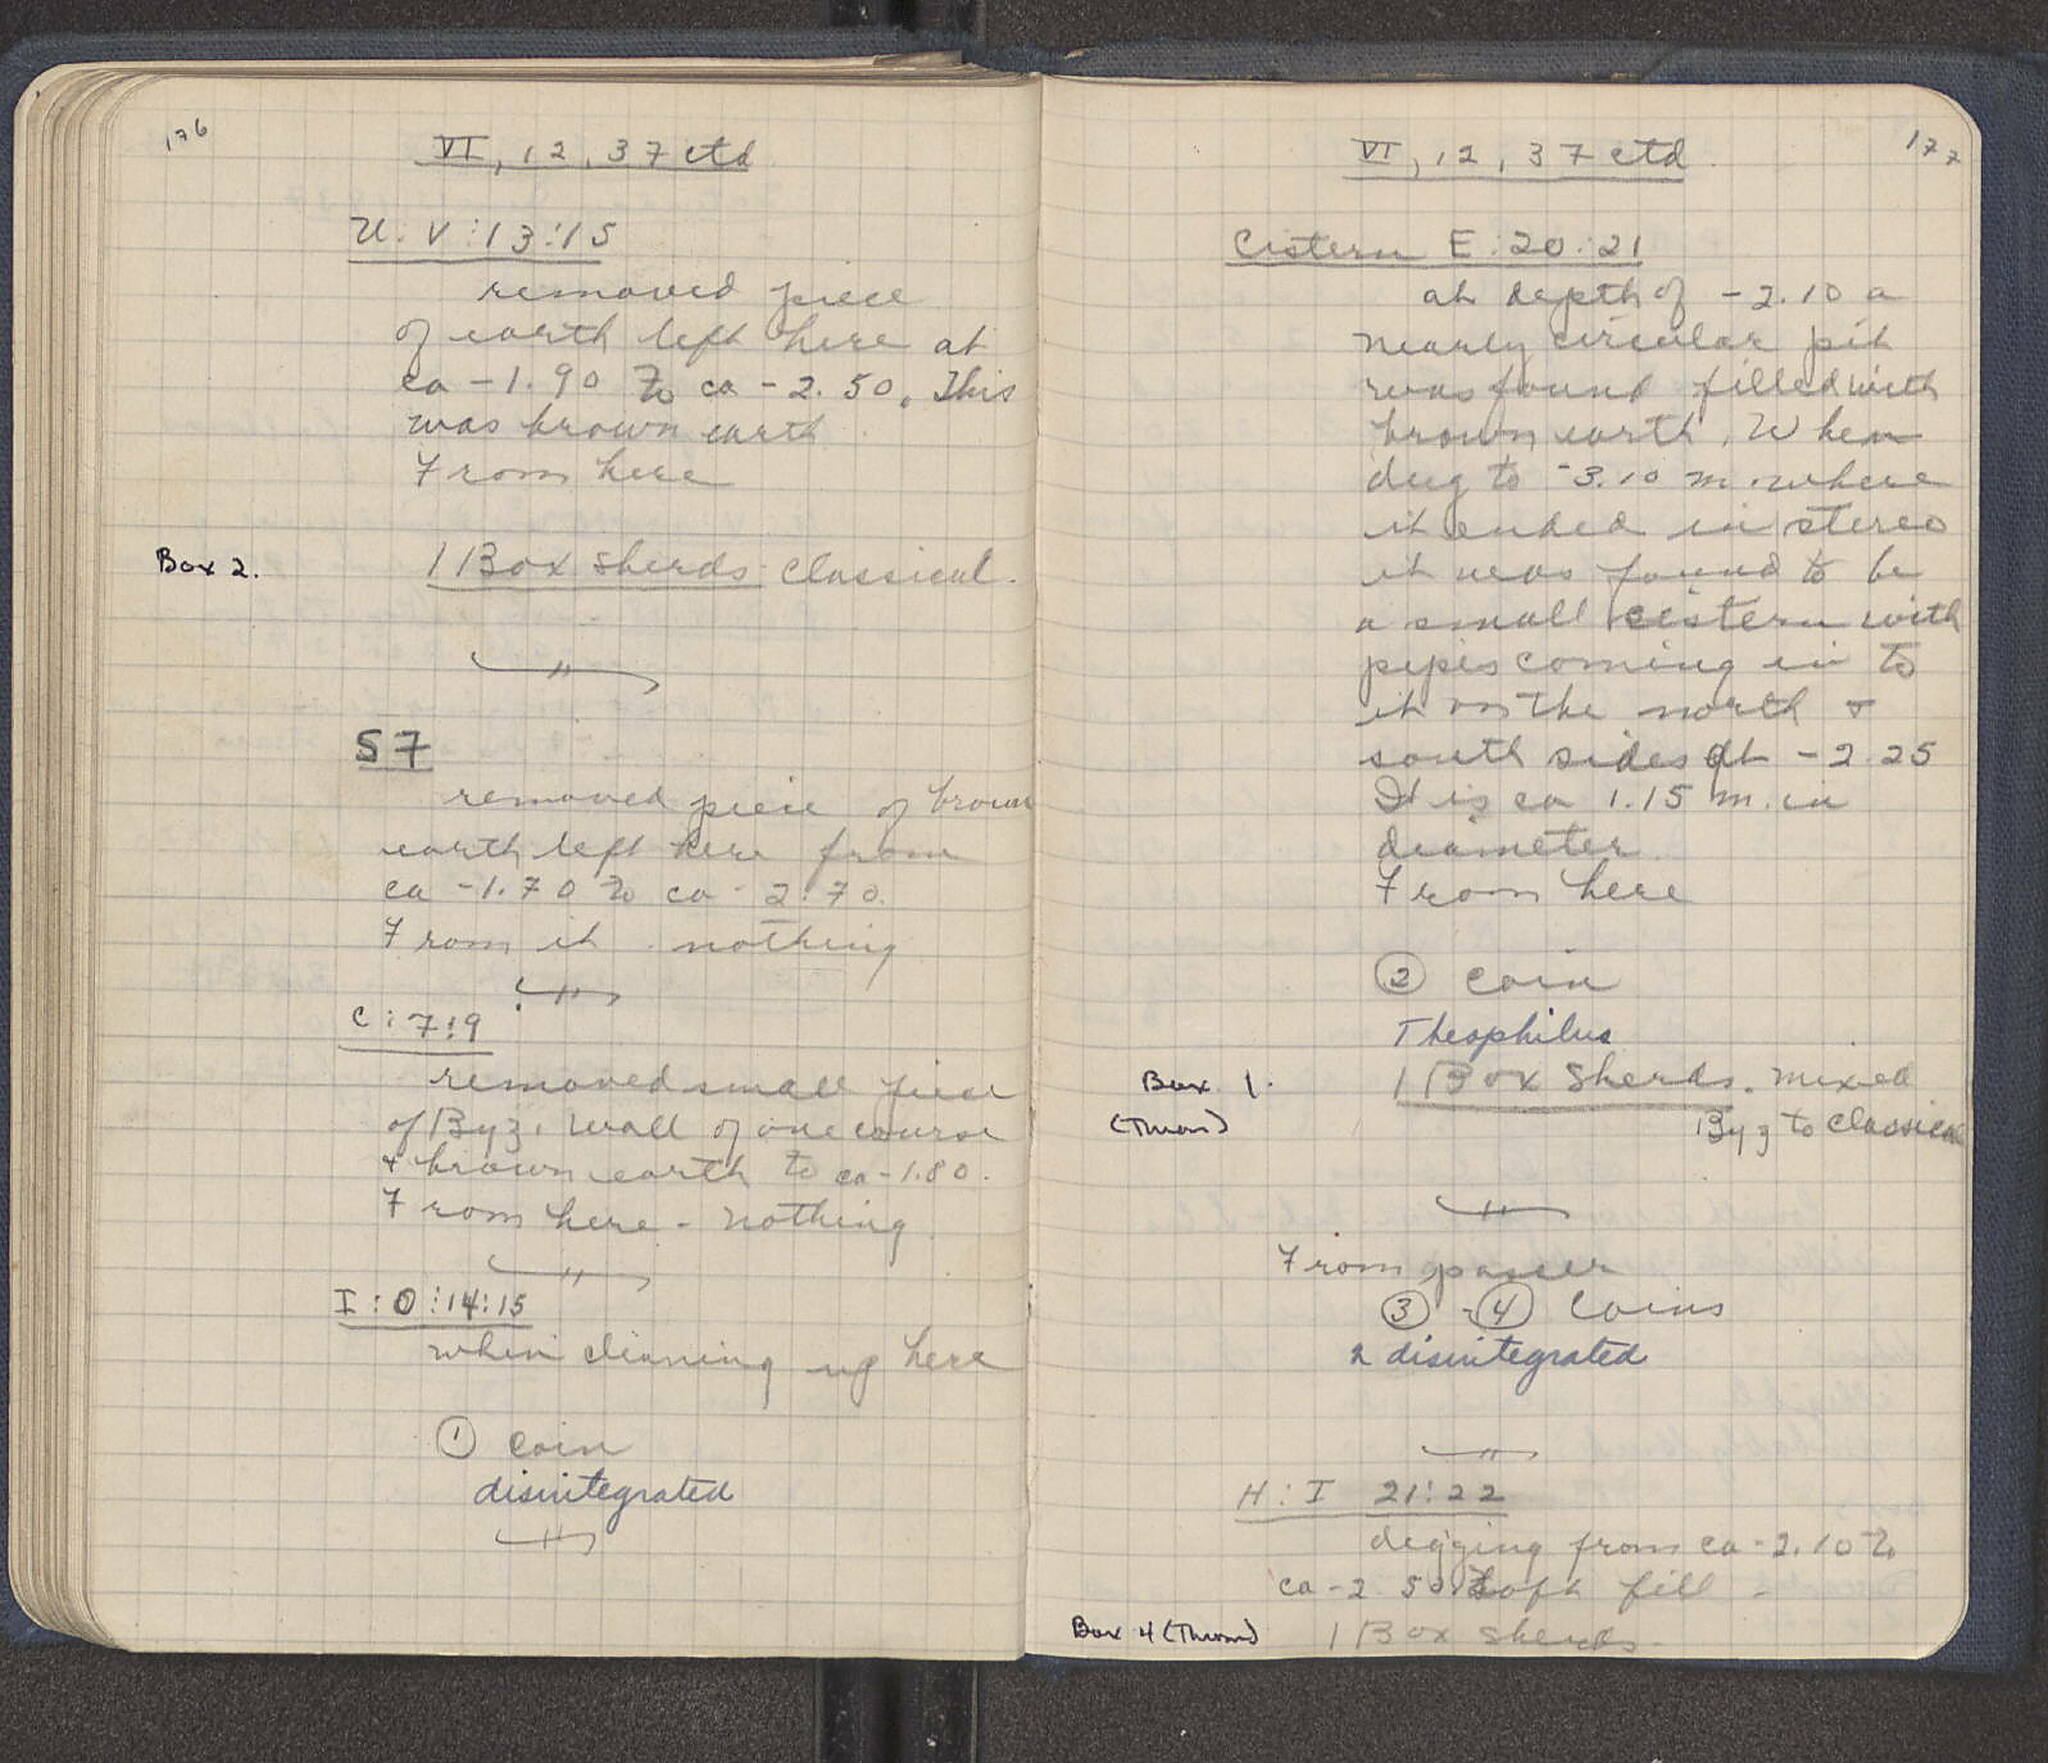 176
VI, 12, 37 ctd
U:V:13:15
removed piece
of earth left here at
ca -1.90 to ca -2.50. This
was brown earth
From here
Box 2.
1 Box sherds classical.
S7
removed piece of brown
earth left here from
ca -1.70 to ca -2.70.
From it nothing
C:7:9
removed small piece
of Byz. wall of one course
+ brown earth to ca -1.80.
From here - nothing
I:O:14:15
when cleaning up here
① coin
disintegrated
177
VI, 12, 37 ctd
Cistern E:20:21
at depth of -2.10 a
nearly circular pit
was found filled with
brown earth. When
dug to -3.10 m. where
it ended in stereo
it was found to be
a small cistern with
pipes coming in to
it on the north +
south sides at -2.25
It is ca 1.15 m. in
diameter.
From here
② coin
Theophilus
Box 1.
(Thrown)
1 Box sherds. mixed
Byz to classical
From passer
③ - ④ coins
2 disintegrated
H:I 21:22
digging from ca -2.10 to
ca -2.50 soft fill -
Box 4 (Thrown)
1 Box sherds.